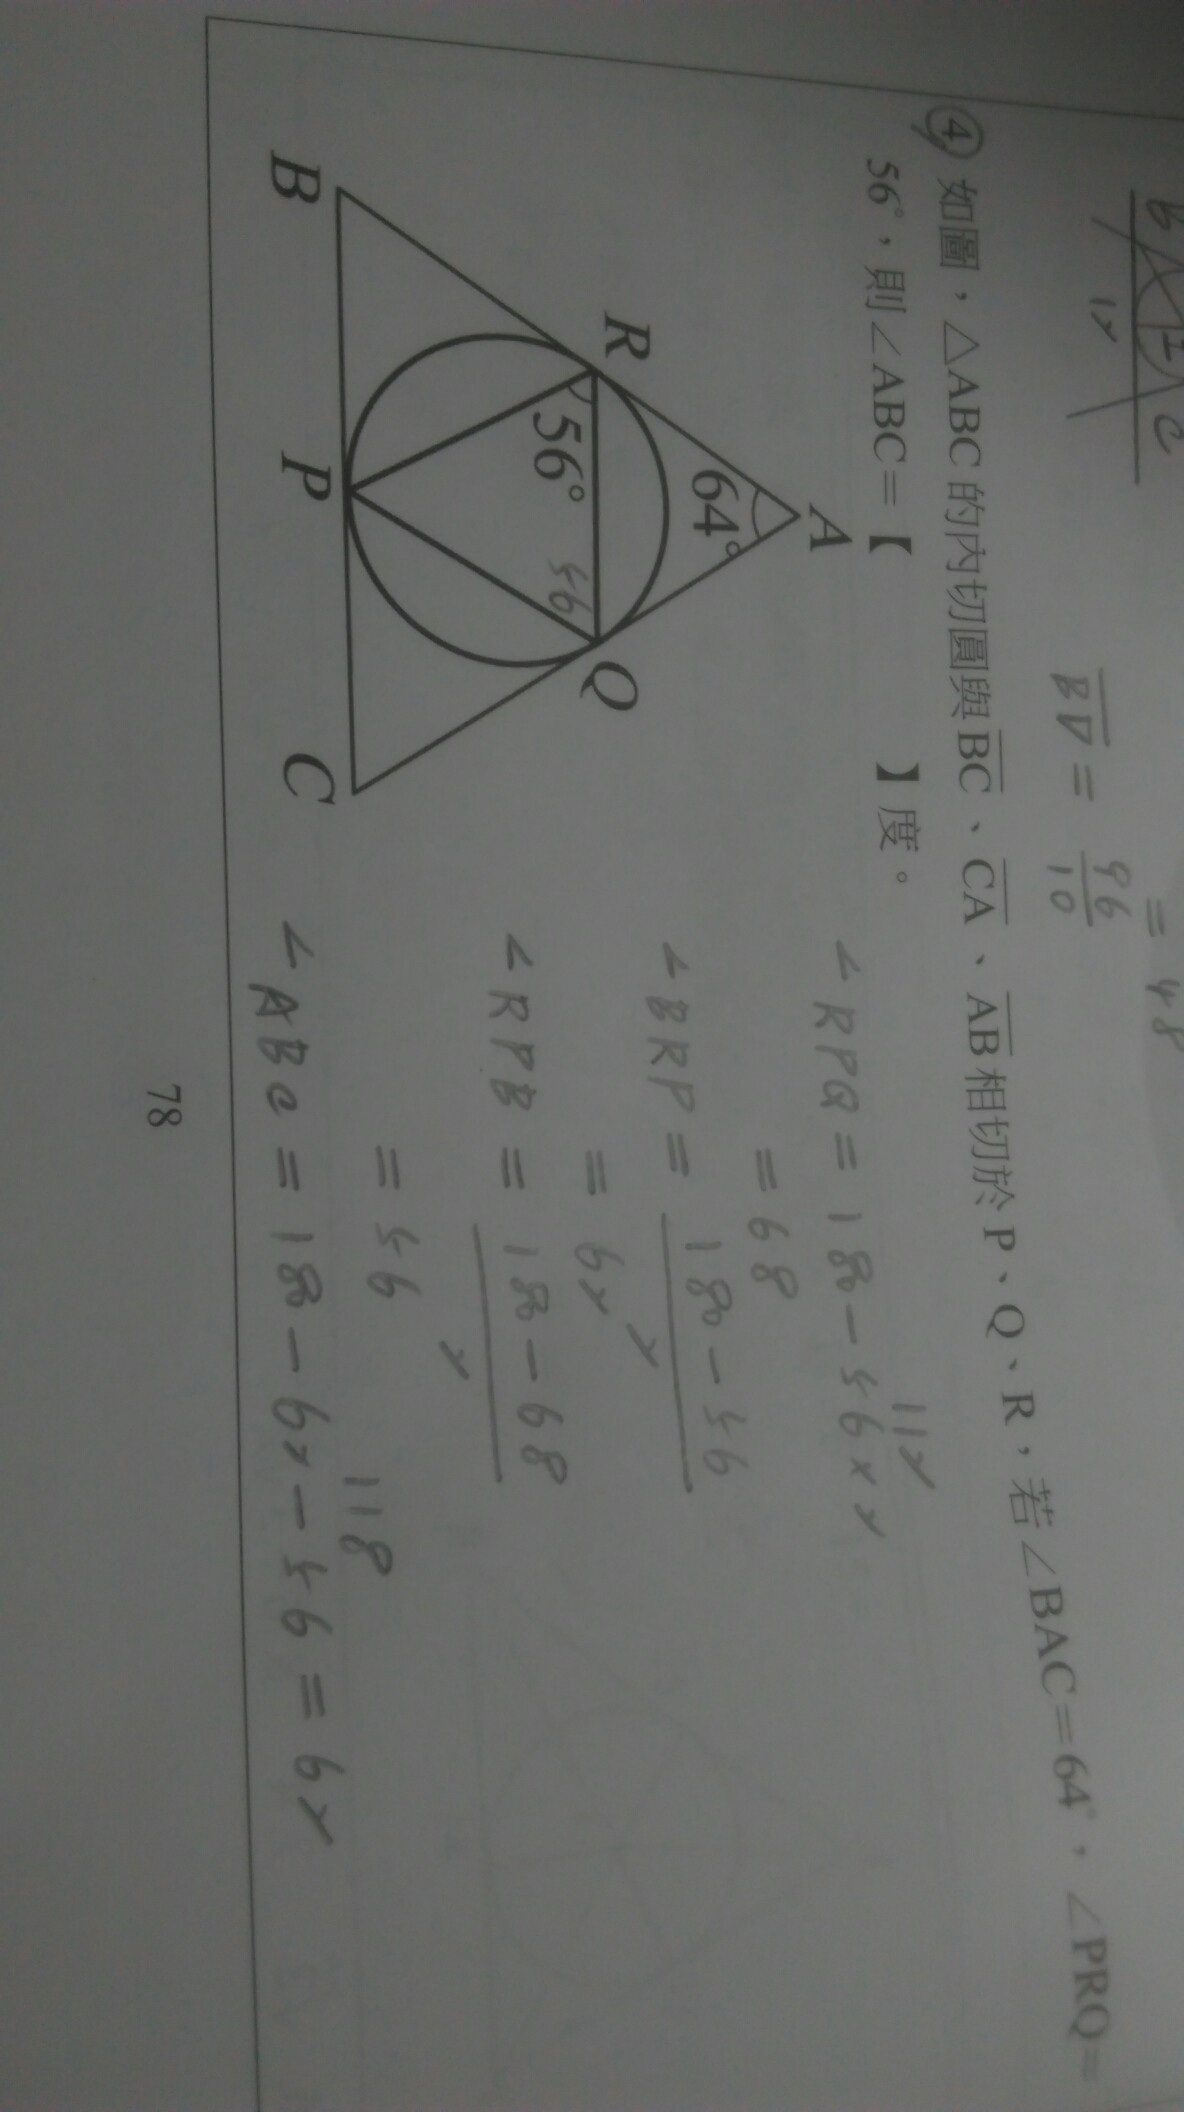 B I C
12
= 48
BD = 96/10
④ 如圖，△ABC 的內切圓與BC、CA、AB相切於 P、Q、R，若∠BAC＝64°，∠PRQ＝
56°，則∠ABC＝【　　　】度。
A
64°
R
Q
56°
56
B
P
C
112
∠RPQ = 180 - 56 × 2
= 68
∠BRP = 180 - 56
2
= 62
∠RPB = 180 - 68
2
= 56
118
∠ABC = 180 - 62 - 56 = 62
78